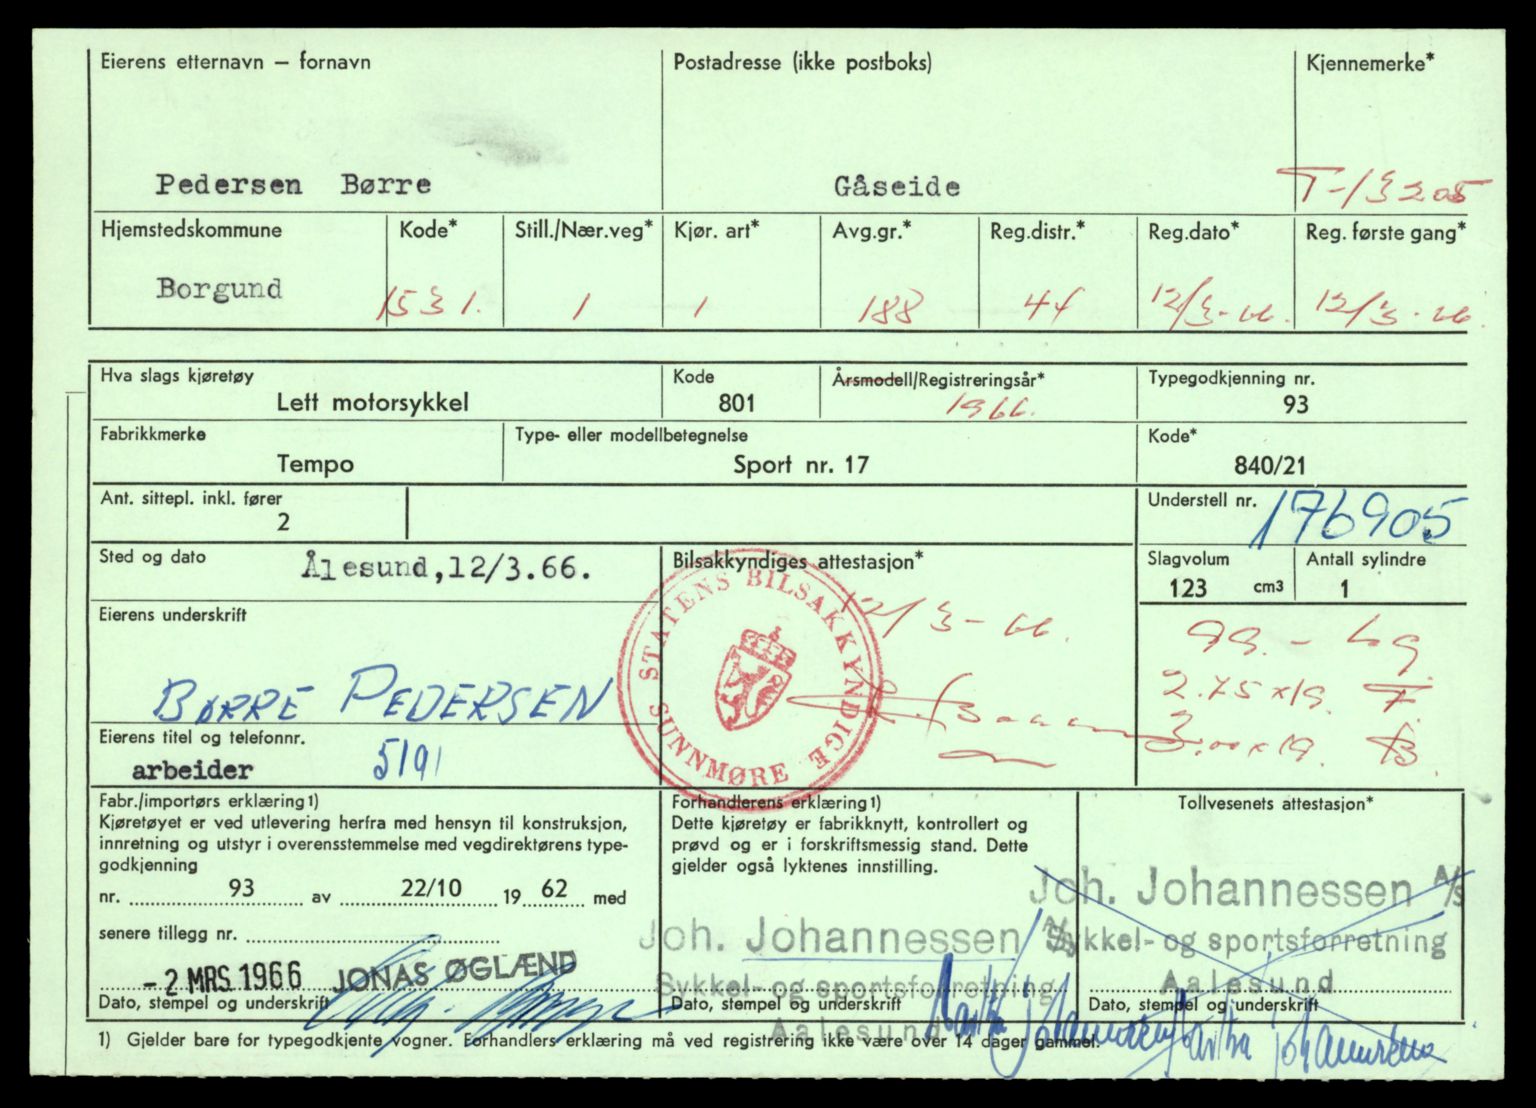 Eierens etternavn — fornavn Postadresse (ikke postboks) Kjennemerke*
Pedersen Børre Gåseide T-13205
Hjemstedskommune Kode* Still./Nær.veg* Kjør. art* Avg.gr.* Reg.distr.* Reg.dato* Reg. første gang*
Borgund 1531. 1 1 188 44 12/3-66. 12/3-66.
Hva slags kjøretøy Kode Årsmodell/Registreringsår* Typegodkjenning nr.
Lett motorsykkel 801 1966. 93
Fabrikkmerke Type- eller modellbetegnelse Kode*
Tempo Sport nr. 17 840/21
Ant. sittepl. inkl. fører Understell nr.
2 176905
Sted og dato Ålesund,12/3.66. Bilsakkyndiges attestasjon* Slagvolum Antall sylindre
123 cm3 1
STATENS BILSAKKYNDIGE SUNNMØRE
12/3-66.
Eierens underskrift
99.- kg.
2.75x19. F.
BØRRE PEDERSEN
3.00x19. B.
Eierens titel og telefonnr.
arbeider 5191
Fabr./importørs erklæring 1) Forhandlerens erklæring 1) Tollvesenets attestasjon*
Kjøretøyet er ved utlevering herfra med hensyn til konstruksjon,
innretning og utstyr i overensstemmelse med vegdirektørens type-
godkjenning
nr. 93 av 22/10 19 62 med
senere tillegg nr.
-2 MRS. 1966 JONAS ØGLÆND
Dato, stempel og underskrift
Dette kjøretøy er fabrikknytt, kontrollert og
prøvd og er i forskriftsmessig stand. Dette
gjelder også lyktenes innstilling.
Joh. Johannessen A/S
Sykkel- og sportsforretning
Aalesund
Dato, stempel og underskrift
Martha Johannessen
Joh. Johannessen A/S
Sykkel- og sportsforretning
Aalesund
Dato, stempel og underskrift
Martha Johannessen
1) Gjelder bare for typegodkjente vogner. Forhandlers erklæring må ved registrering ikke være over 14 dager gammel.